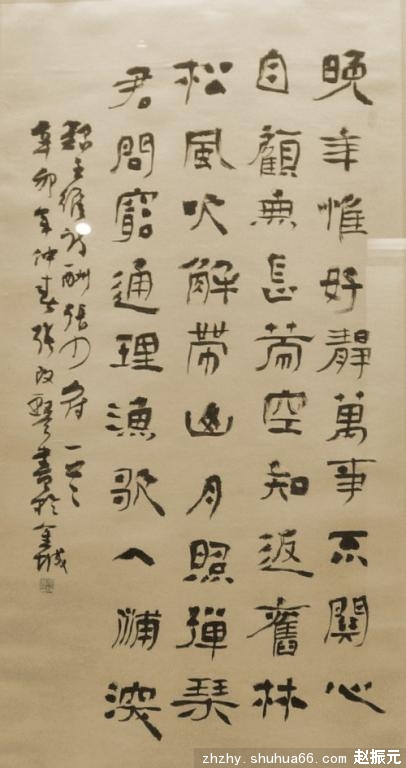 晚年惟好靜萬事不關心
自顧無長策空知返舊林
松風吹解帶山月照彈琴
君問窮通理漁歌入浦深
錄王維詩酬張少府一首
辛卯年仲春張改琴書於金城
zhzhy.shuhua66.com 赵振元